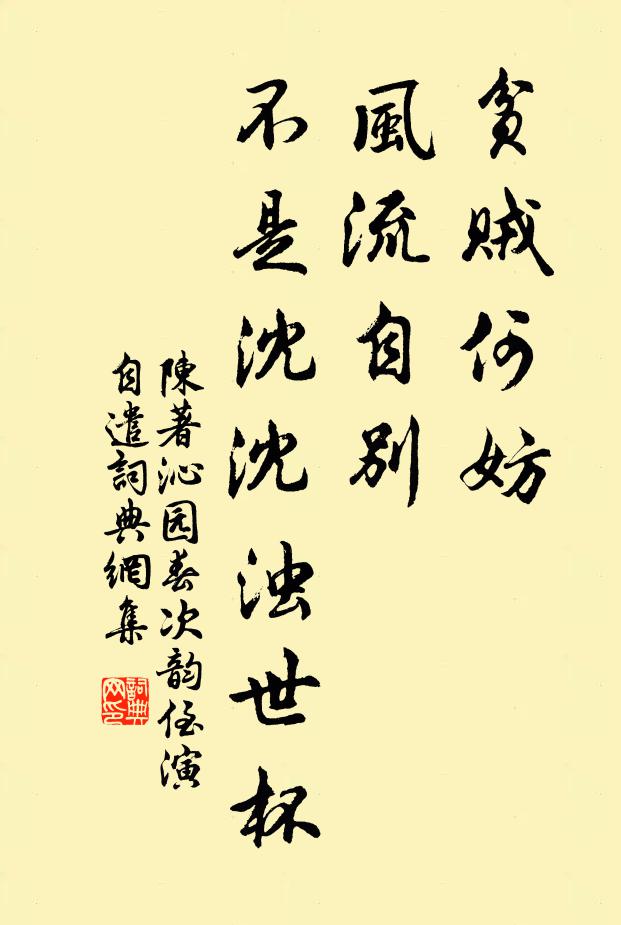 貧賤何妨
風流自別
不是沈沈浊世杯
陳著沁园春次韵侄演
自遣詞典網集
詞典
网印